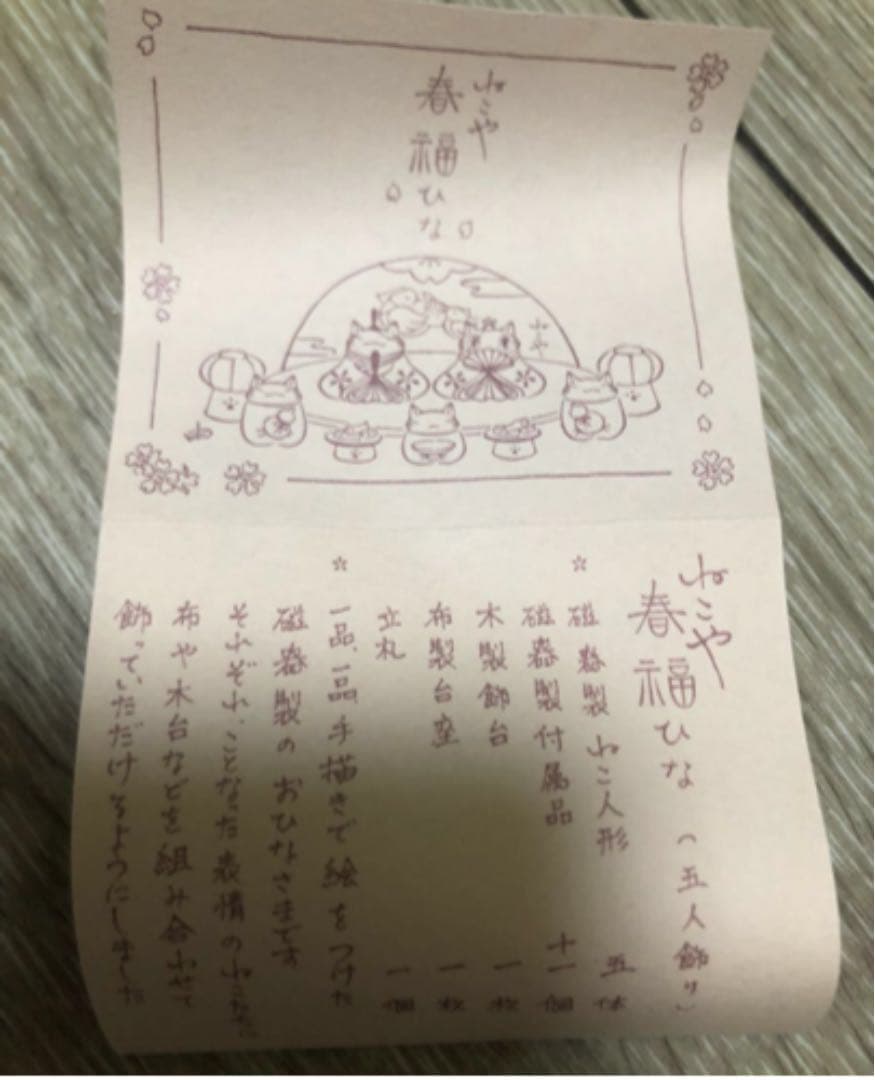 ねこや
春福ひな
ねこや
春福ひな（五人飾り）
☆ 磁器製ねこ人形 五体
磁器製付属品 十一個
木製飾台 一枚
布製台座 一枚
立札 一個
☆ 一品、一品、手描きで絵をつけた
磁器製のおひなさまです
それぞれ、ことなった表情のねこたち
布や木台などを組み合わせて
飾っていただけるようにしました